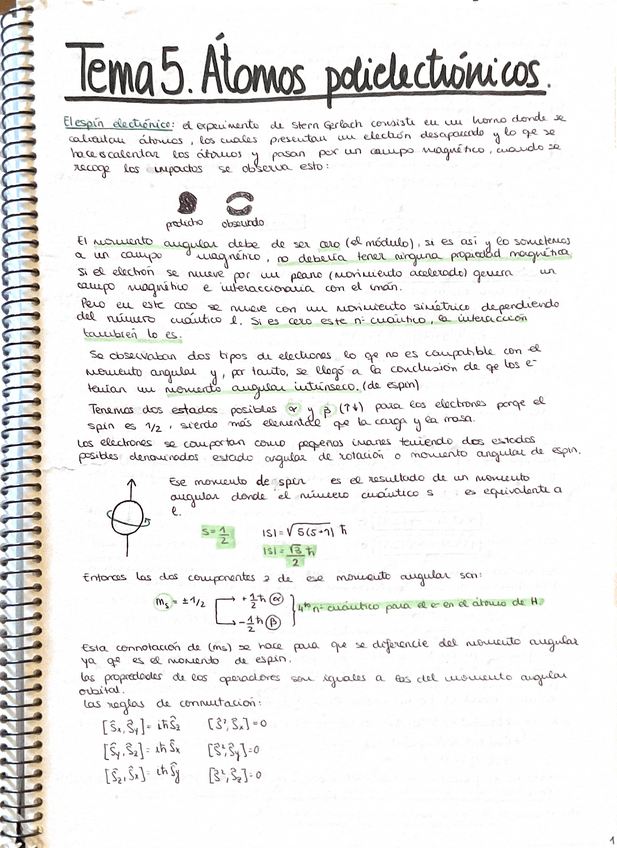 Tema 5. Átomos polielectrónicos.
El espín electrónico: el experimento de Stern Gerlach consiste en un horno donde se
calientan átomos, los cuales presentan un electrón desapareado y lo que se
hace es calentar los átomos y pasan por un campo magnético, cuando se
recoge los impactos se observa esto:
predicho observado
El momento angular debe de ser cero (el módulo), si es así y lo sometemos
a un campo magnético, no debería tener ninguna propiedad magnética.
Si el electrón se mueve por un plano (movimiento acelerado) genera un
campo magnético e interaccionaría con el imán.
Pero en este caso se mueve con un movimiento simétrico dependiendo
del número cuántico l. Si es cero este nº cuántico, la interacción
también lo es.
Se observaban dos tipos de electrones lo qe no es compatible con el
momento angular y, por tanto, se llegó a la conclusión de qe los e-
tenían un momento angular intrínseco. (de espín)
Tenemos dos estados posibles α y β (↑↓) para los electrones porqe el
spin es 1/2, siendo más elemental qe la carga y la masa.
Los electrones se comportan como pequeños imanes teniendo dos estados
posibles denominados estado angular de rotación o momento angular de espin.
Ese momento de spin es el resultado de un momento
angular donde el número cuántico s es equivalente a
l.
s = 1/2 |S| = √s(s+1) ħ
|S| = √3/2 ħ
Entonces las dos componentes z de ese momento angular son:
ms = ±1/2 → +1/2 ħ (α)
→ -1/2 ħ (β) } 4to nº cuántico para el e- en el átomo de H.
Esta connotación de (ms) se hace para que se diferencie del momento angular
ya qe es el momento de espin.
Las propiedades de los operadores son iguales a las del momento angular
orbital.
Las reglas de conmutación:
[Ŝx, Ŝy] = iħ Ŝz [Ŝ², Ŝx] = 0
[Ŝy, Ŝz] = iħ Ŝx [Ŝ², Ŝy] = 0
[Ŝz, Ŝx] = iħ Ŝy [Ŝ², Ŝz] = 0
1